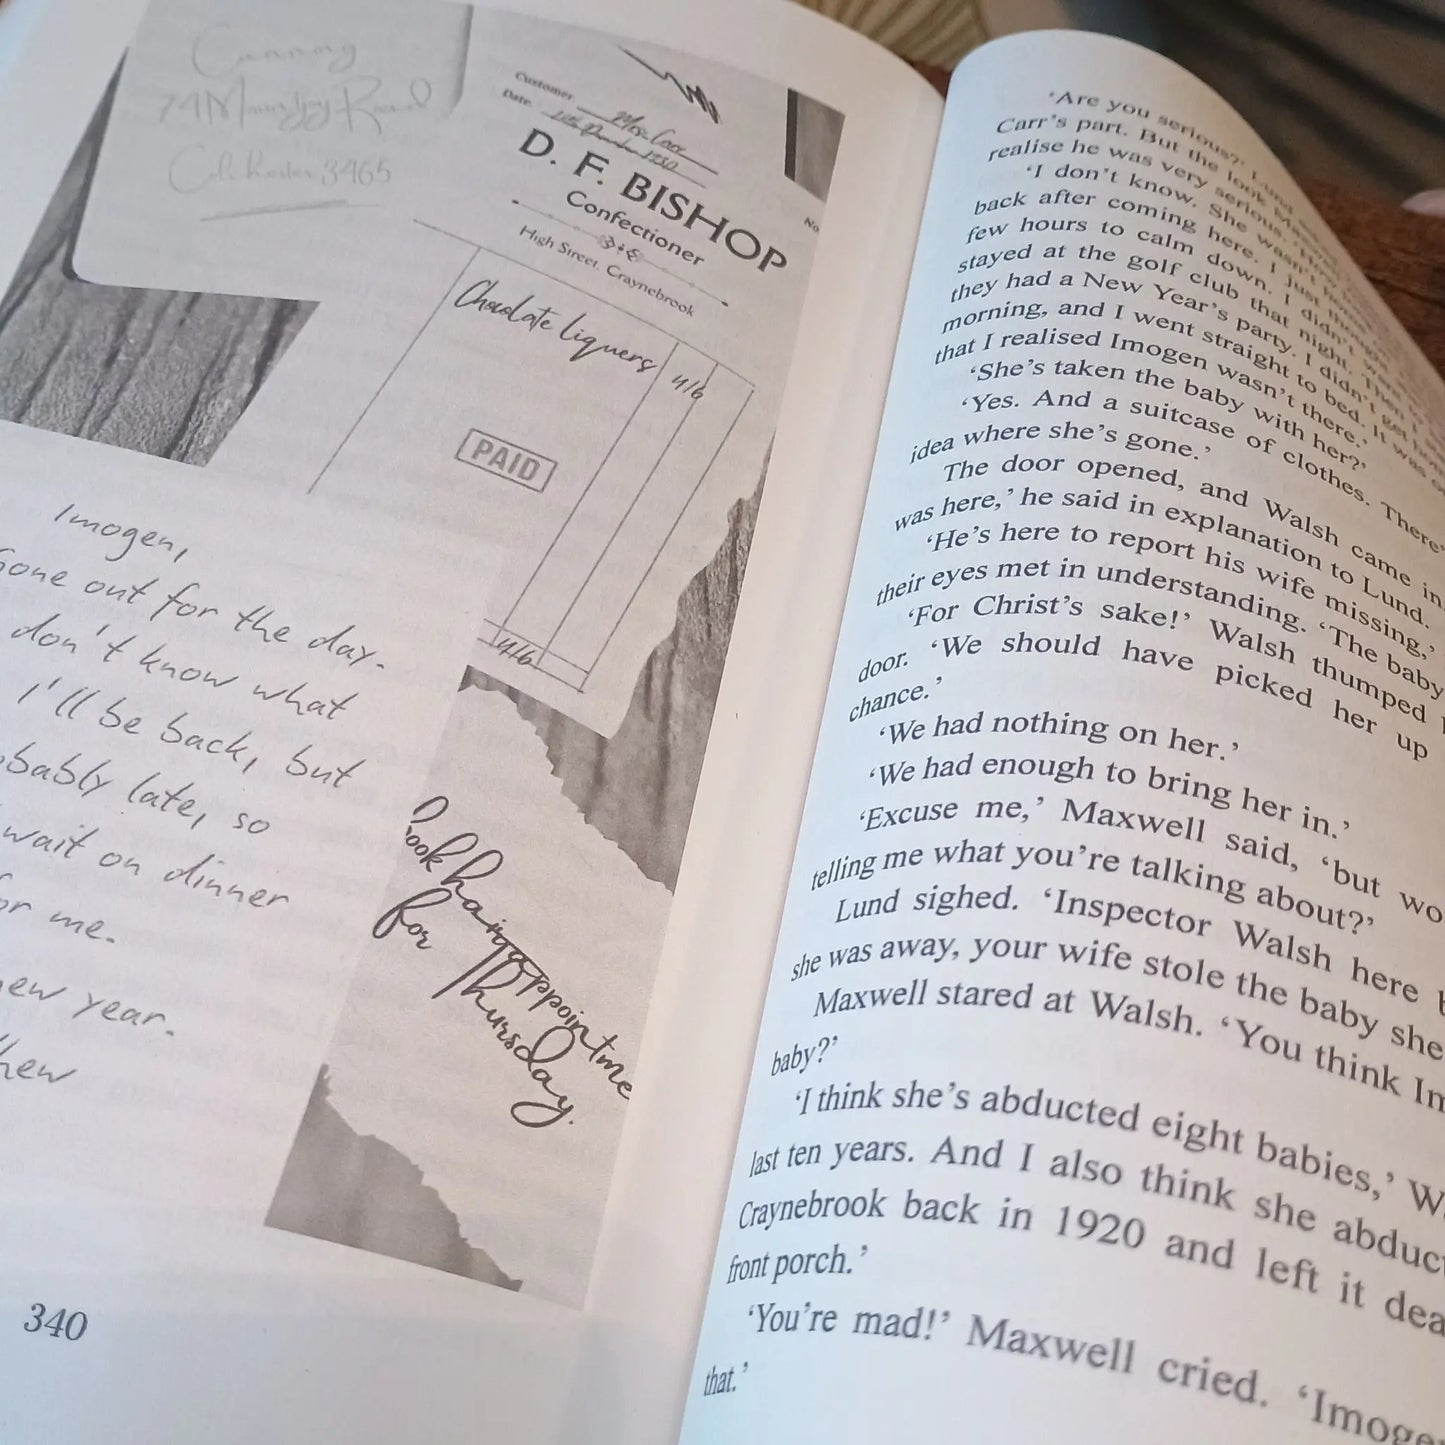 74
3465
Customer
Date
D. F. BISHOP
Confectioner
High Street, Craynebrook
No
Chocolate liquers
4/6
PAID
4/6
Imogen,
Gone out for the day.
don't know what
I'll be back, but
late, so
wait on dinner
me.
year.
hair appointme
for Thursday.
340
'Are you serious?'
Carr's part. But the look
realise he was very serious.
'I don't know. She wasn't
back after coming here. I just
few hours to calm down. I didn't
stayed at the golf club that night.
they had a New Year's party. I didn't get
morning, and I went straight to bed. It was
that I realised Imogen wasn't there.'
'She's taken the baby with her?'
'Yes. And a suitcase of clothes. There'
idea where she's gone.'
The door opened, and Walsh came in.
was here,' he said in explanation to Lund.
'He's here to report his wife missing,'
their eyes met in understanding. 'The baby
'For Christ's sake!' Walsh thumped
door. 'We should have picked her up
chance.'
'We had nothing on her.'
'We had enough to bring her in.'
'Excuse me,' Maxwell said, 'but wo
telling me what you're talking about?'
Lund sighed. 'Inspector Walsh here b
she was away, your wife stole the baby she
Maxwell stared at Walsh. 'You think Im
baby?'
'I think she's abducted eight babies,' W
last ten years. And I also think she abduct
Craynebrook back in 1920 and left it dea
front porch.'
'You're mad!' Maxwell cried. 'Imoge
that.'